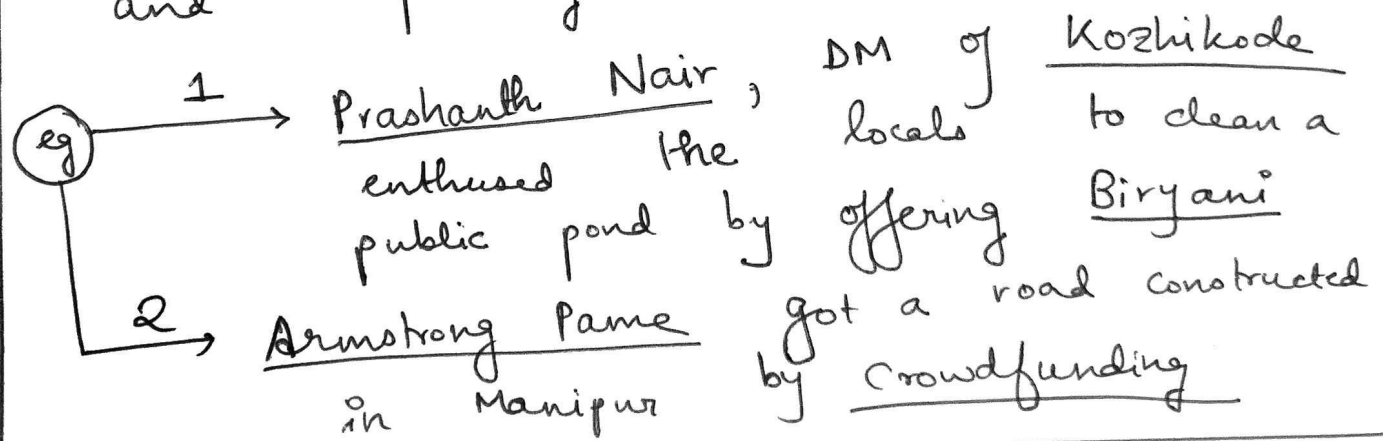 and
eg 1 Prashanth Nair, DM of Kozhikode
enthused the locals to clean a
public pond by offering Biryani
2 Armstrong Pame got a road constructed
in Manipur by Crowdfunding